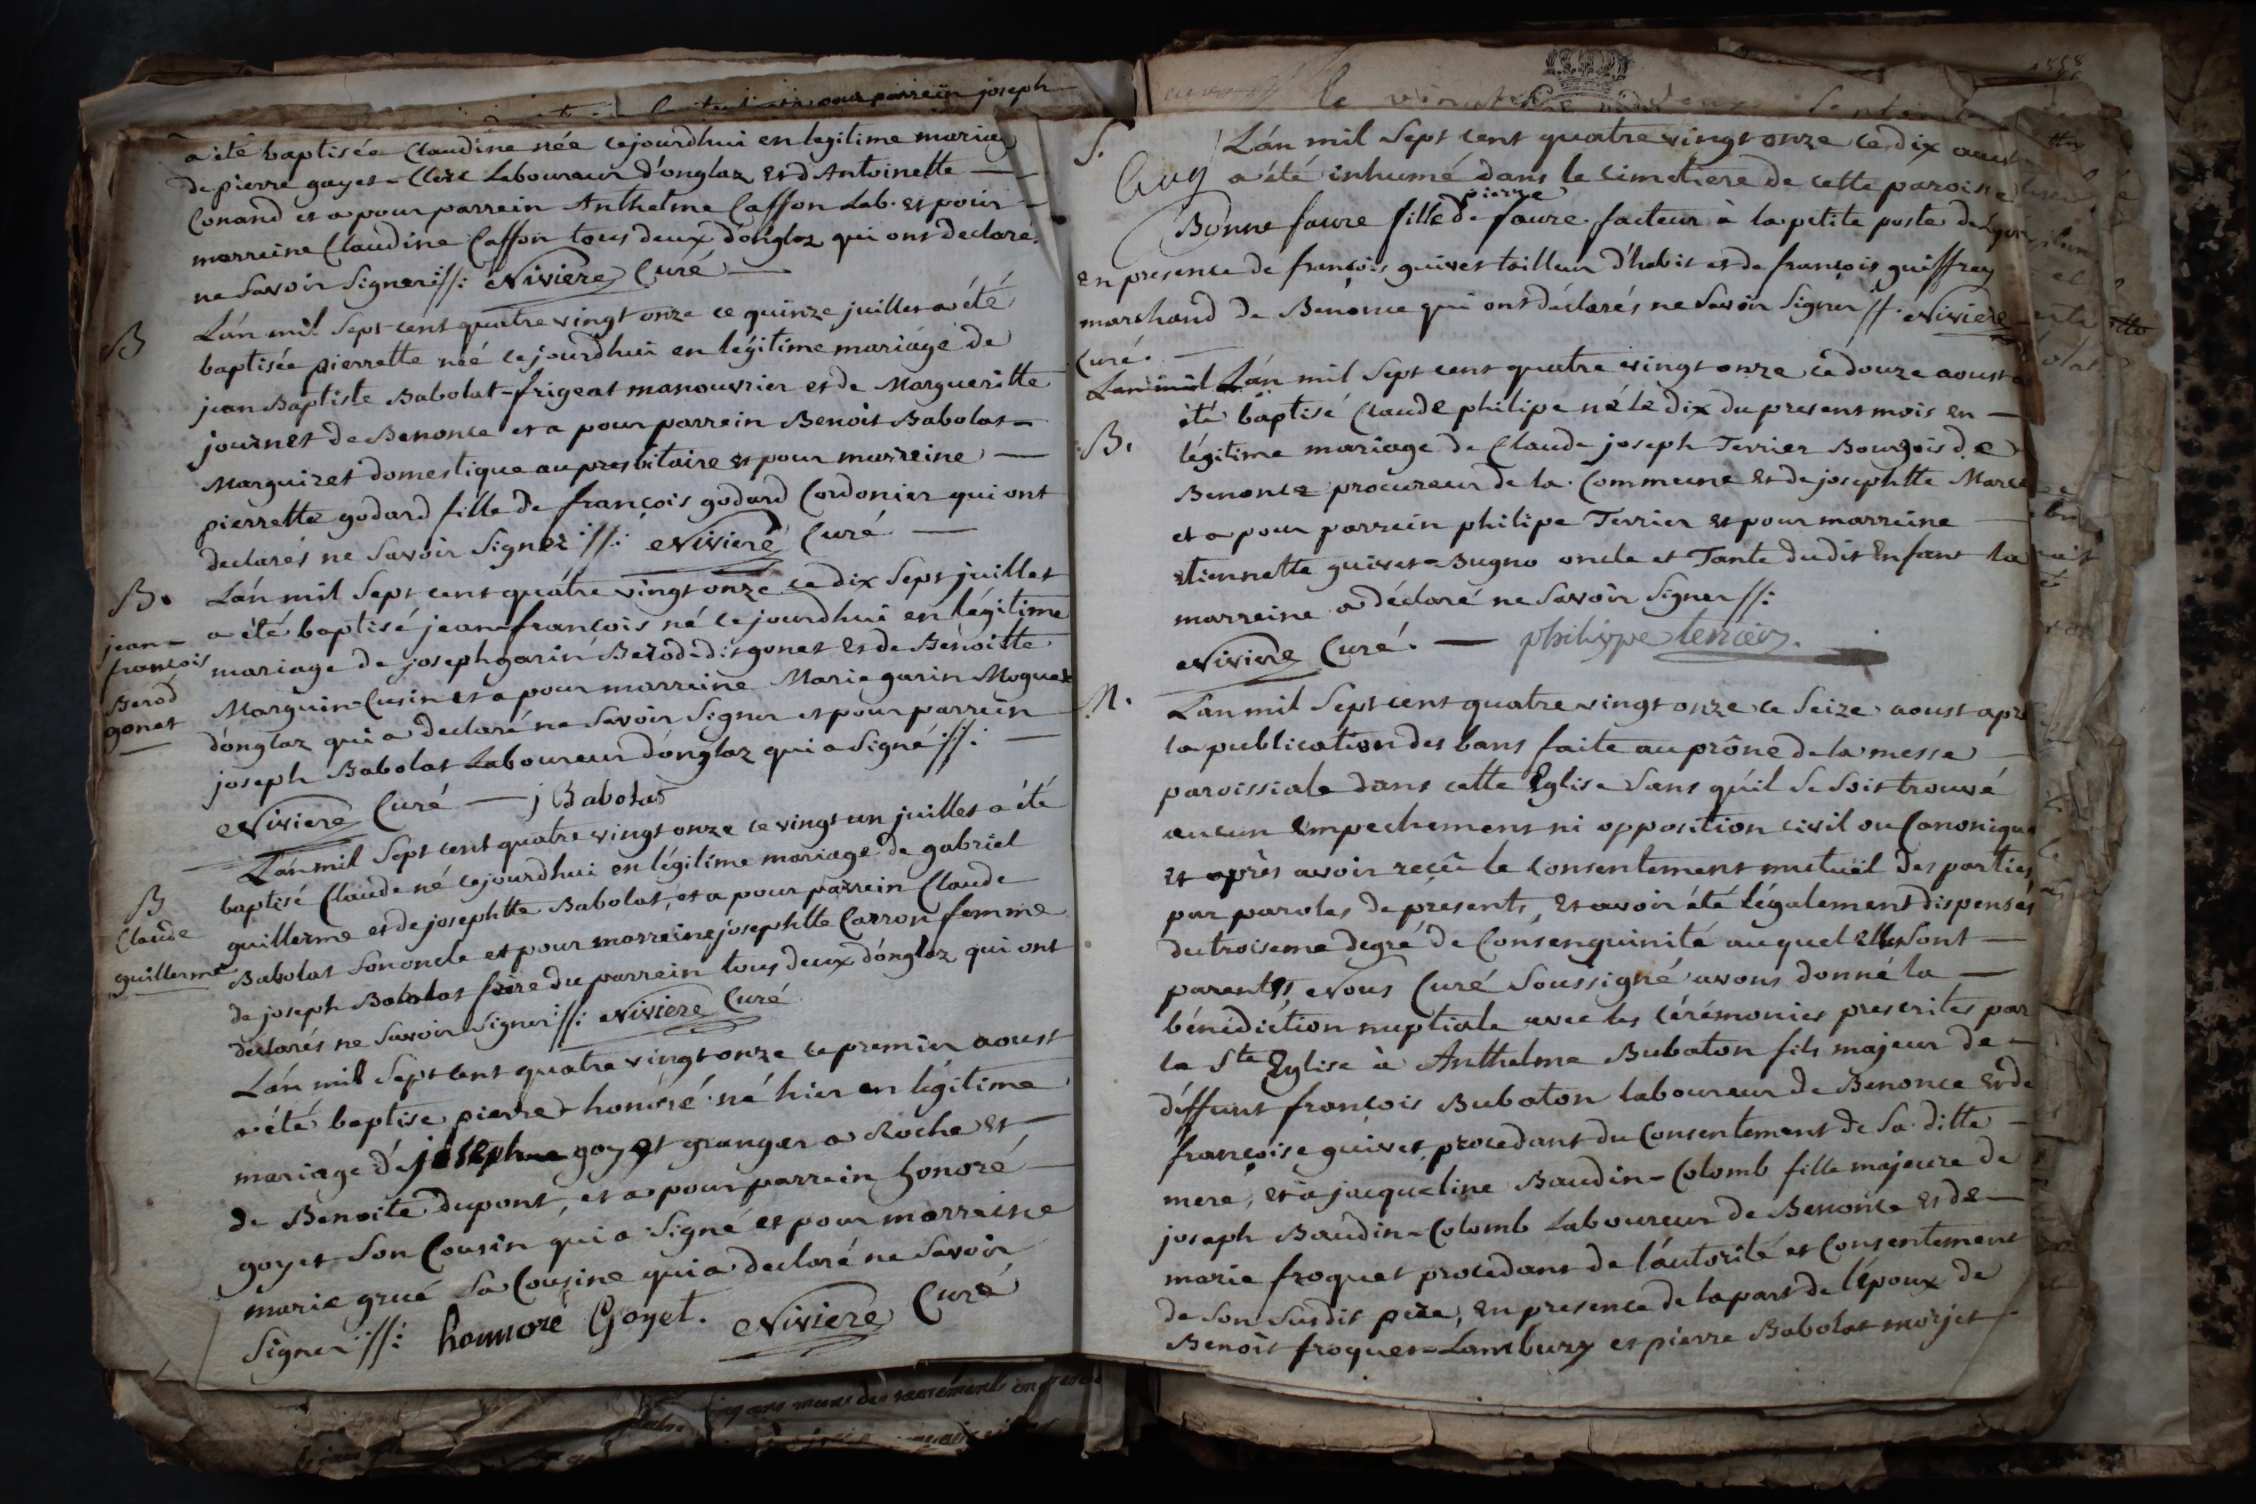 pour parrein joseph
a été baptisée Claudine née cejourdhui en legitime mariag
de pierre goyet-Clerc Laboureur d'onglaz et d'Antoinette —
Conand et a pour parrein Anthelme Caffon Lab. et pour —
marreine Claudine Caffon tous deux d'onglaz qui ont declare.
ne Savoir Signer //: Niviere Curé —
B
L'an mil Sept cent quatre vingt onze ce quinze juillet a été
baptisée pierrette née cejourdhui en légitime mariage de
jean Baptiste Babolat-frigeat manouvrier et de Margueritte
journet de Benonce et a pour parrein Benoit Babolat-
Marguiret domestique au presbitaire et pour marreine —
pierrette godard fille de françois godard Cordonier qui ont
declarés ne Savoir Signer //: Niviere Curé —
B.
jean-
françois
Berod
gonet
L'an mil Sept cent quatre vingt onze ce dix Sept juillet
a été baptisé jean-françois né cejourdhui en légitime
mariage de joseph garin Berod-dit gonet et de Benoitte
Marguin-Cusin et a pour marreine Marie garin Moguet
d'onglaz qui a declaré ne Savoir Signer et pour parrein
joseph Babolat Laboureur d'onglaz qui a Signé //: —
Niviere Curé — j Babolat
B
Claude
guillerme
L'an mil Sept cent quatre vingt onze ce vingt un juillet a été
baptisé Claude né cejourdhui en légitime mariage de gabriel
guillerme et de josephtte Babolat, et a pour parrein Claude
Babolat Son oncle et pour marreine josephtte Carron femme
de joseph Babolat frere du parrein tous deux d'onglaz qui ont
declarés ne Savoir Signer //: Niviere Curé
L'an mil Sept cent quatre vingt onze ce premier aoust
a été baptisé pierre-honoré né hier en légitime
mariage de joseph goyet granger a Roche et —
de Benoite dupont, et a pour parrein honoré —
goyet Son Cousin qui a Signé et pour marreine
marie grué Sa Cousine qui a declaré ne Savoir
Signer //: honnoré Goyet. Niviere Curé
S.
L'an mil Sept cent quatre vingt onze ce dix aoust
a été inhumé dans le cimetiere de cette paroisse
pierre
Bonne faure fille de faure facteur à la petite poste de Lyon
en presence de françois guivet tailleur d'habit et de françois guiffrey
marchand de Benonce qui ont déclarés ne Savoir Signer //: Niviere
Curé. —
B.
L'an mil L'an mil Sept cent quatre vingt onze ce douze aoust a
été baptisé Claude philipe né le dix du present mois en —
légitime mariage de Claude joseph Terrier Bourgois de
Benonce procureur de la Commune et de josephtte
et a pour parrein philipe Terrier et pour marreine —
etiennette guivet-Bugno oncle et Tante dudit Enfant la
marreine a déclaré ne Savoir Signer //:
Niviere Curé. — philippe terrier.
M.
L'an mil Sept cent quatre vingt onze ce Seize aoust apré
la publication des bans faite au prône de la messe —
paroissiale dans cette Eglise Sans qu'il Se Soit trouvé
aucun Empechement ni opposition civil ou Canonique
et après avoir reçû le consentement mutuël des parties
par paroles de présents, Et avoir été légalement dispensés
du troiseme degré de Consenguinité auquel ils Sont —
parents, Nous Curé Soussigné avons donné la —
bénédiction nuptiale avec les cérémonies prescrites par
la Ste Eglise à Anthelme Bubaton fils majeur de —
déffunt françois Bubaton laboureur de Benonce et de
françoise guivet, procedant du Consentement de Sa ditte —
mere, et à jacqueline Baudin-Colomb fille majeure de
joseph Baudin-Colomb Laboureur de Benonce et de —
marie froquet procedant de l'autorité et Consentement
de Son Susdit pere, En presence de la part de l'époux de
Benoit froquet-Lambury et pierre Babolat morjet